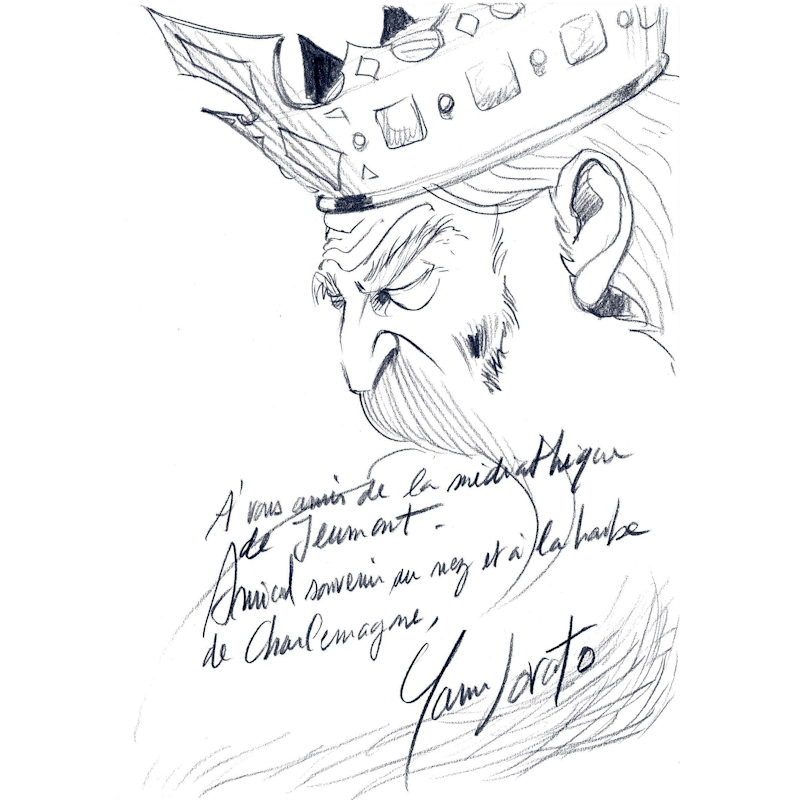 A' vous amis de la médiathèque
de Jeumont.
Amical souvenir au nez et à la barbe
de Charlemagne,
Yann Lovato